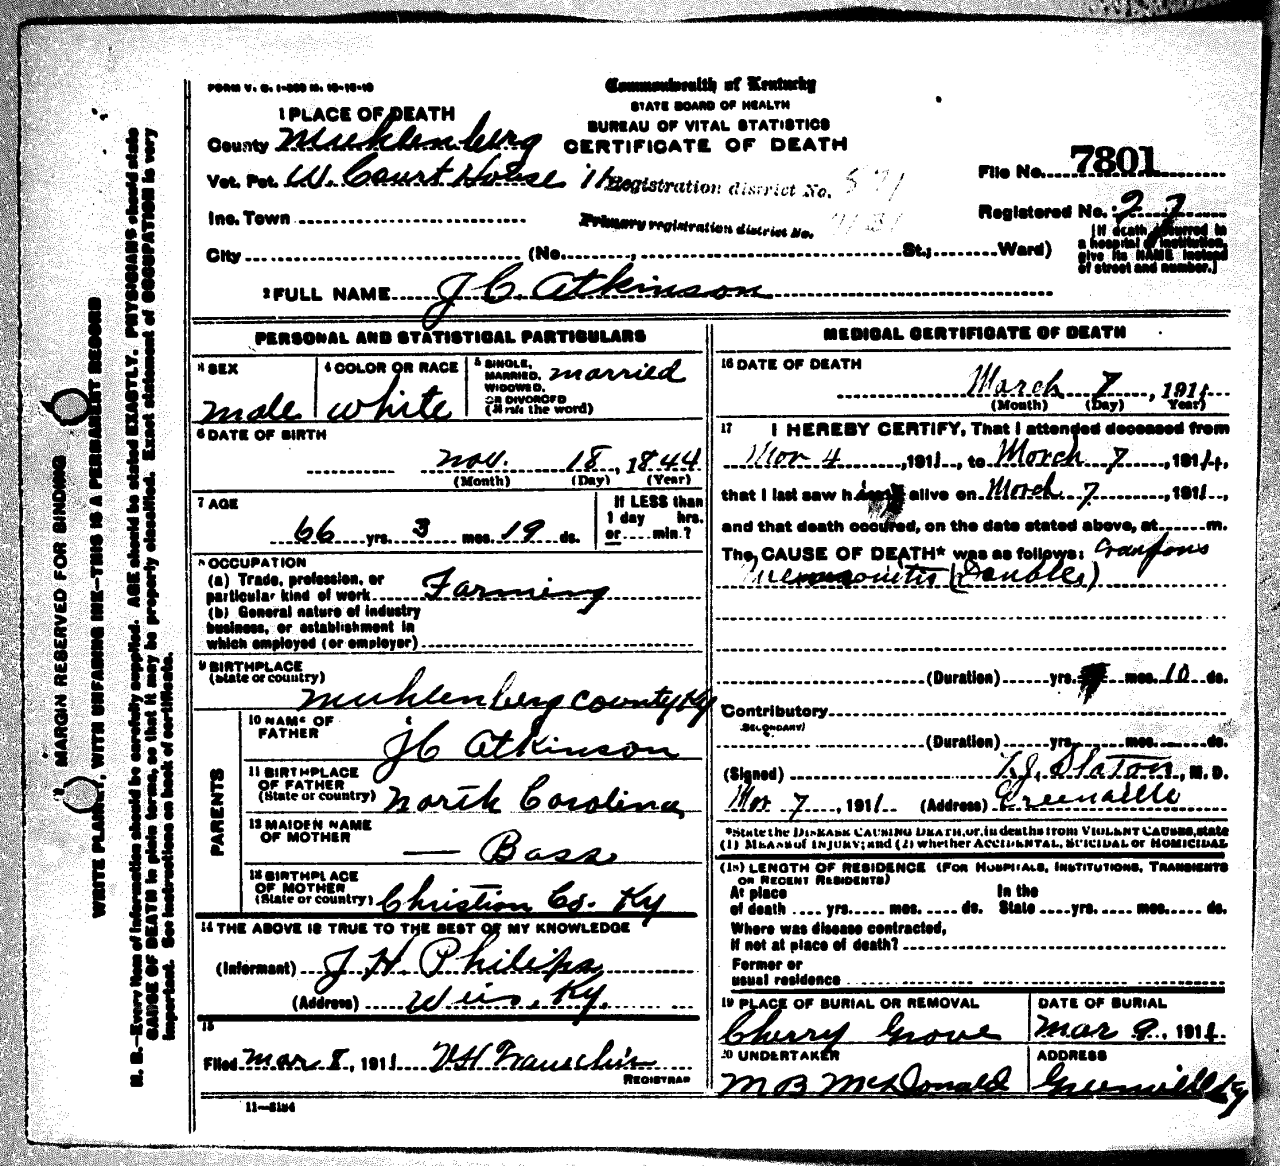 FORM V. S. 1-
Commonwealth of Kentucky
STATE BOARD OF HEALTH
BUREAU OF VITAL STATISTICS
CERTIFICATE OF DEATH
1 PLACE OF DEATH
County Muhlenberg
Vot. Pct. W. Court House
Registration district No.
File No. 7801
Inc. Town
Primary registration district No.
Registered No. 27
City (No. , St.; Ward)
[If death occurred in
a hospital or institution,
give its NAME instead
of street and number.]
2 FULL NAME J C Atkinson
PERSONAL AND STATISTICAL PARTICULARS
3 SEX male
4 COLOR OR RACE white
5 SINGLE, MARRIED, WIDOWED, OR DIVORCED (Write the word) married
6 DATE OF BIRTH
Nov. 18, 1844
(Month) (Day) (Year)
7 AGE
66 yrs. 3 mos. 19 ds.
If LESS than
1 day hrs.
or min.?
8 OCCUPATION
(a) Trade, profession, or
particular kind of work Farming
(b) General nature of industry
business, or establishment in
which employed (or employer)
9 BIRTHPLACE
(State or country)
Muhlenberg County Ky
PARENTS
10 NAME OF
FATHER J C Atkinson
11 BIRTHPLACE
OF FATHER
(State or country) North Carolina
12 MAIDEN NAME
OF MOTHER — Bass
13 BIRTHPLACE
OF MOTHER
(State or country) Christian Co. Ky
14 THE ABOVE IS TRUE TO THE BEST OF MY KNOWLEDGE
(Informant) J H. Philips
(Address) Weir, Ky.
15
Filed Mar 8, 1911
REGISTRAR
11-3184
MEDICAL CERTIFICATE OF DEATH
16 DATE OF DEATH
March 7, 1911
(Month) (Day) (Year)
17 I HEREBY CERTIFY, That I attended deceased from
Mar 4, 1911, to March 7, 1911,
that I last saw h alive on March 7, 1911,
and that death occured, on the date stated above, at m.
The CAUSE OF DEATH* was as follows:
(Double)
(Duration) yrs. mos. 10 ds.
Contributory
(SECONDARY)
(Duration) yrs. mos. ds.
(Signed) T.J. Slaton, M. D.
Mar 7, 1911 (Address) Greenville
*State the DISEASE CAUSING DEATH, or, in deaths from VIOLENT CAUSES, state
(1) MEANS of INJURY; and (2) whether ACCIDENTAL, SUICIDAL or HOMICIDAL
(18) LENGTH OF RESIDENCE (FOR HOSPITALS, INSTITUTIONS, TRANSIENTS
OR RECENT RESIDENTS)
At place In the
of death yrs. mos. ds. State yrs. mos. ds.
Where was disease contracted,
if not at place of death?
Former or
usual residence
19 PLACE OF BURIAL OR REMOVAL DATE OF BURIAL
Cherry Grove Mar 9, 1911
20 UNDERTAKER ADDRESS
M B McDonald Greenville Ky
MARGIN RESERVED FOR BINDING
WRITE PLAINLY, WITH UNFADING INK—THIS IS A PERMANENT RECORD
N. B.—Every item of information should be carefully supplied. AGE should be stated EXACTLY. PHYSICIANS should state
CAUSE OF DEATH in plain terms, so that it may be properly classified. Exact statement of OCCUPATION is very
important. See instructions on back of certificate.